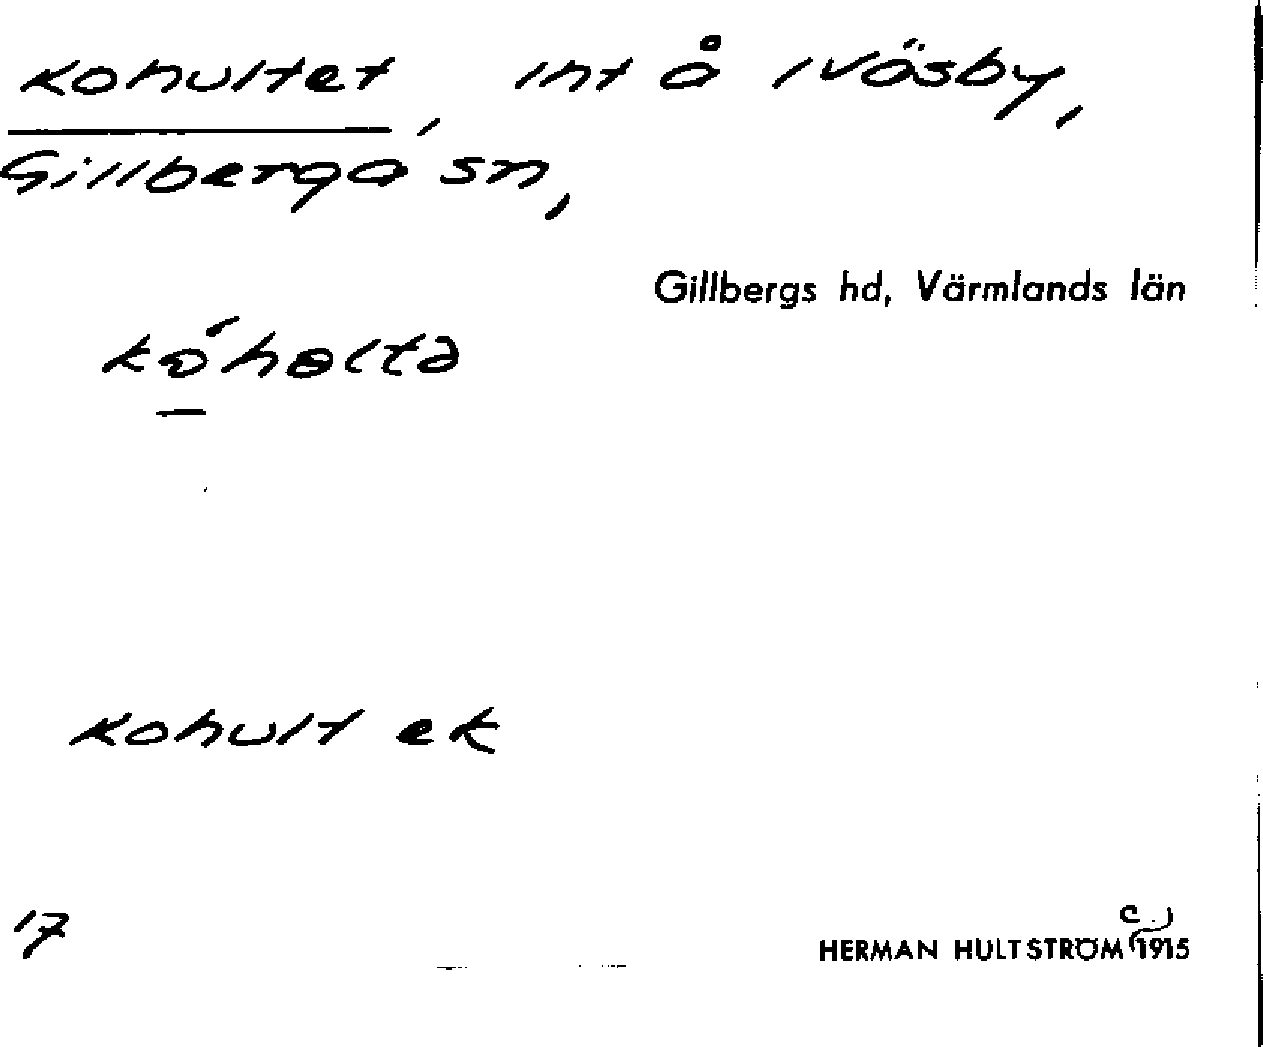 Kohultet, int å i Väsby,
Gillberga sn,
Gillbergs hd, Värmlands län
Kohult ek
17
c.
HERMAN HULTSTRÖM 1915